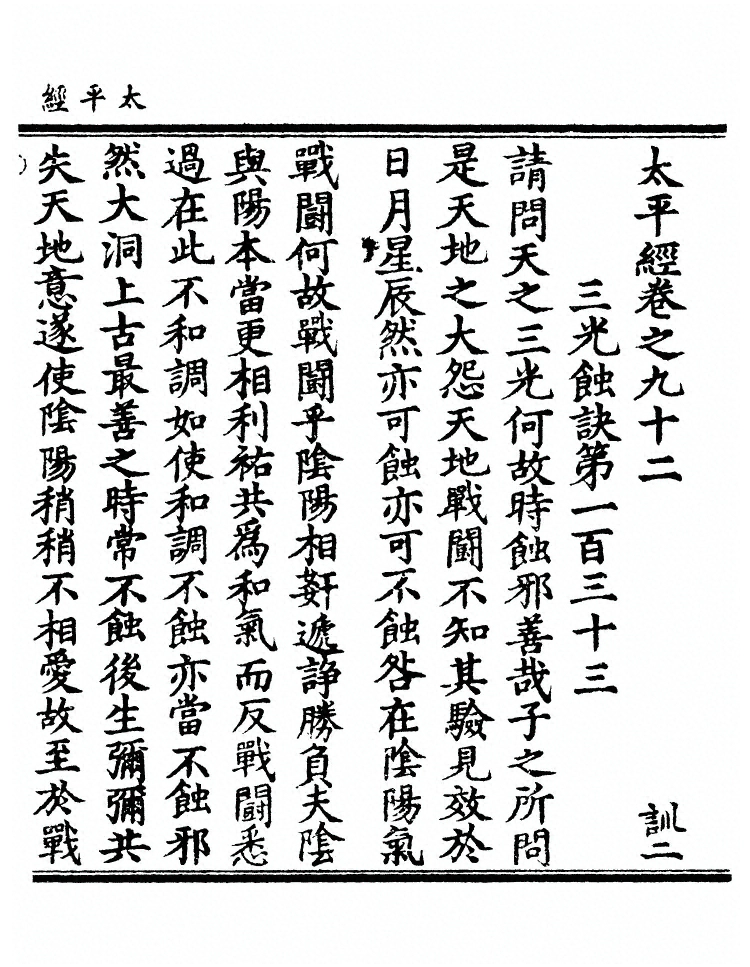 太平經
太平經卷之九十二
訓二
三光蝕訣第一百三十三
請問天之三光何故時蝕邪善哉子之所問
是天地之大怨天地戰鬪不知其驗見效於
日月星辰然亦可蝕亦可不蝕咎在陰陽氣
戰鬪何故戰鬪乎陰陽相姧遞諍勝負夫陰
與陽本當更相利祐共爲和氣而反戰鬪悉
過在此不和調如使和調不蝕亦當不蝕邪
然大洞上古最善之時常不蝕後生彌彌共
失天地意遂使陰陽稍稍不相愛故至於戰